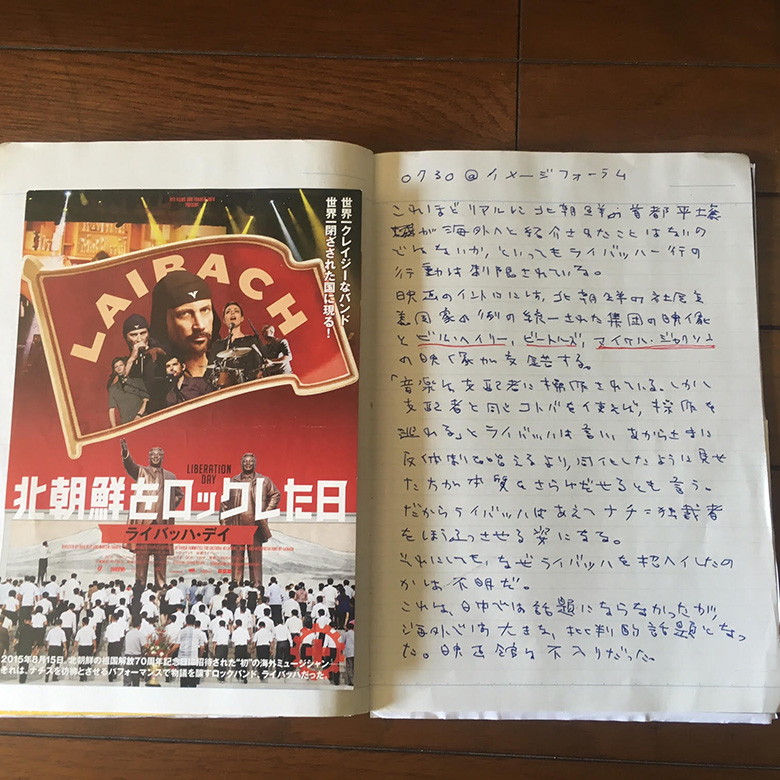 世界一クレイジーなバンド
世界一閉ざされた国に現る!
LAIBACH
LIBERATION
DAY
北朝鮮をロックした日
ライバッハ・デイ
2015年8月15日、北朝鮮の祖国解放70周年記念日に招待された“初”の海外ミュージシャン
それは、ナチスを彷彿とさせるパフォーマンスで物議を醸すロックバンド、ライバッハだった。
0730@イメージフォーラム
これほどリアルに北朝鮮の首都平壌
が海外へと紹介されたことはないの
でないか、といってもライバッハ一行の
行動は制限されている。
映画のイントロには、北朝鮮の社会主
義国家の例の統一された集団の映像
とビル・ヘイリー、ビートルズ、マイケル・ジャクソン
の映像が交錯する。
「音楽は支配者に操作されている。しかし
支配者と同じコトバを使えば、操作を
逃れる」とライバッハは言い、あからさまに
反体制を唱えるより、同化したように見せ
た方が本質をさらけだせるとも言う。
だからライバッハはあえてナチ=独裁者
をほうふつさせる姿になる。
それにしても、なぜライバッハを招へいしたの
かは不明だ。
これは、日本では話題にならなかったが、
海外では大きな、批判的話題となっ
た。映画館は不入りだった。